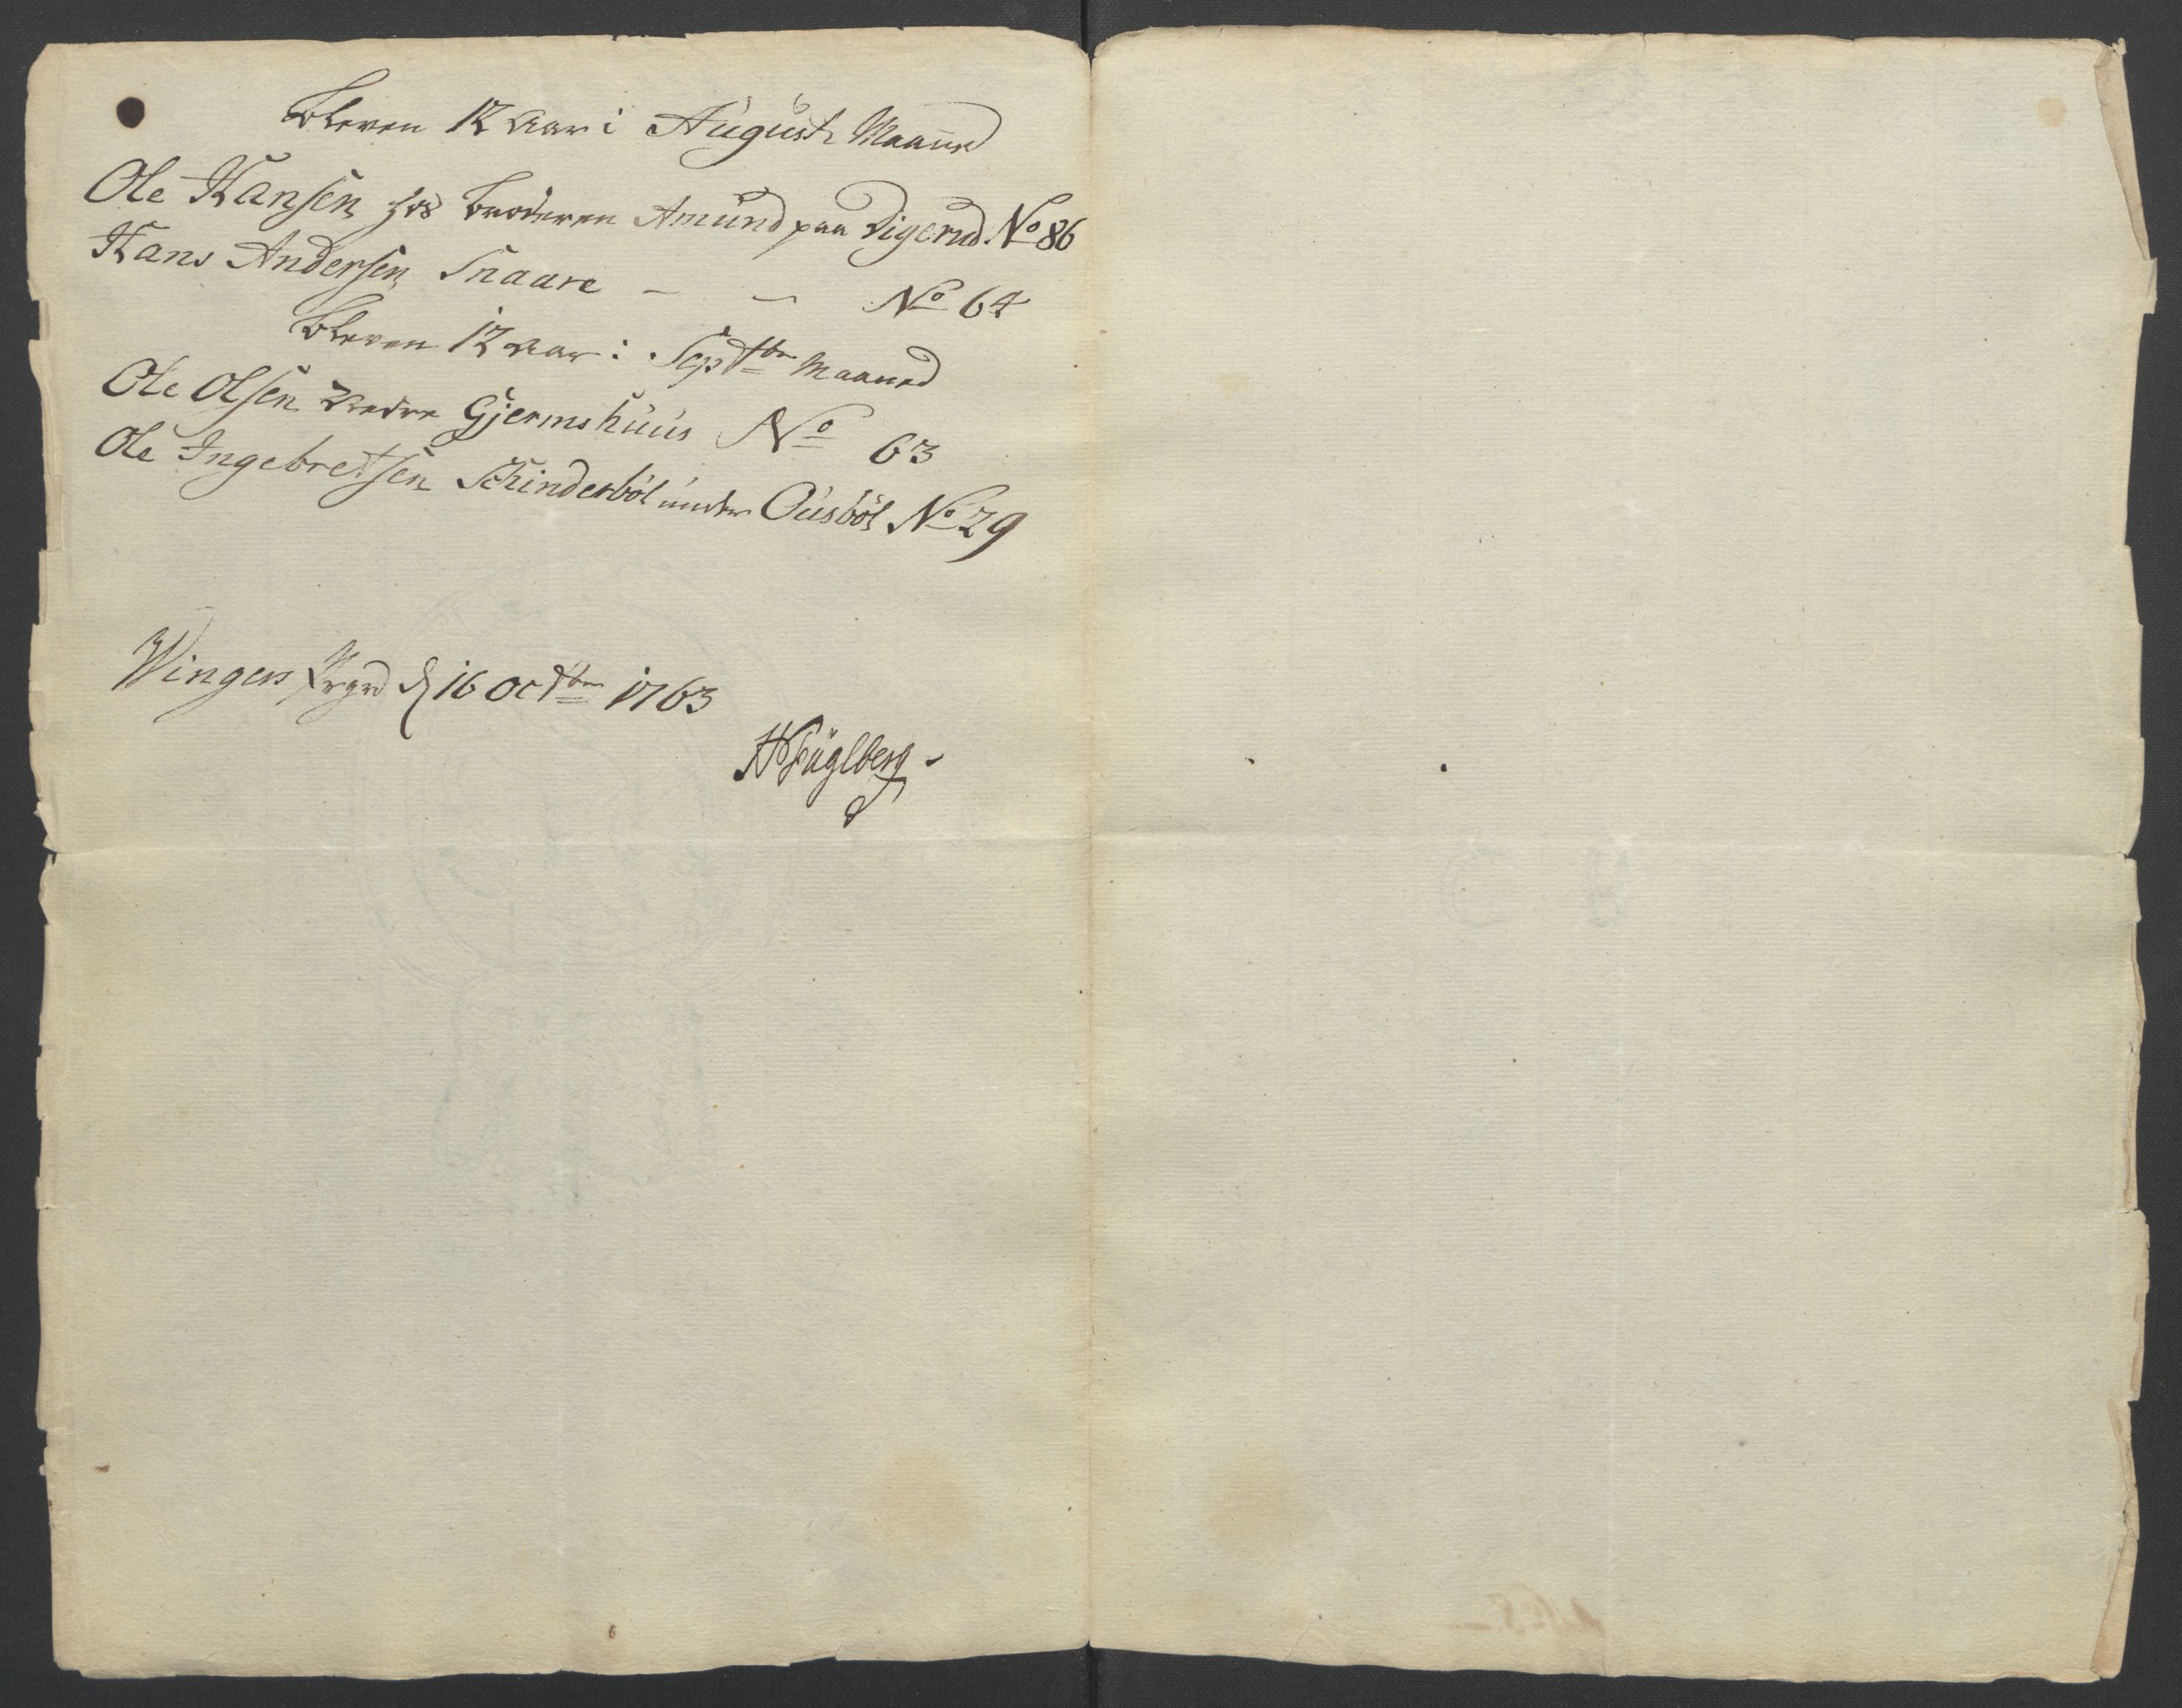 bleven 12 Aar i August Maaned
Ole Hansen hos broderen Amund paa Digerud No 86
Hans Andersen Snaare - - No 64
bleven 12 Aar i Septbr Maaned
Ole Olsen Nedre Gjermshuus No 63
Ole Ingebretsen Schinderböl under Ousböl No 29
Winger Prgrd d 16 Octbr 1763